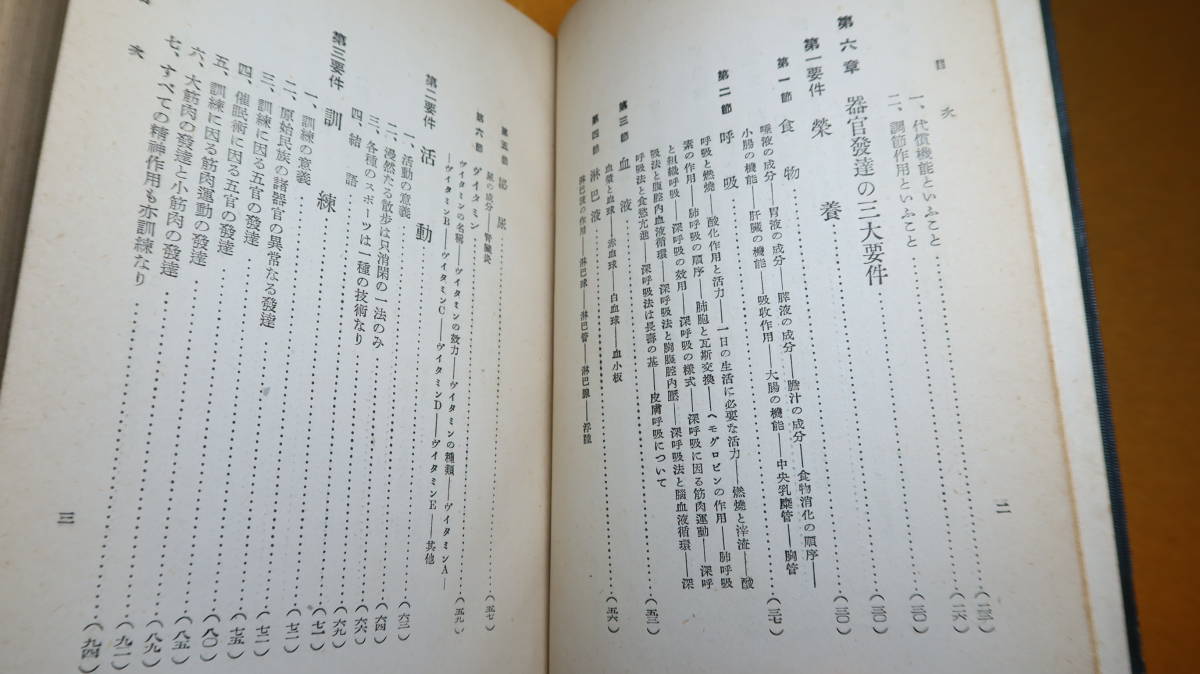 目次
一、代償機能といふこと……(二三)
二、調節作用といふこと……(二六)
第六章 器官發達の三大要件……(三〇)
第一要件 榮養……(三〇)
第一節 食物……(三〇)
唾液の成分——胃液の成分——膵液の成分——膽汁の成分——食物消化の順序——
小腸の機能——肝臓の機能——吸收作用——大腸の機能——中央乳糜管——胸管
第二節 呼吸……(三七)
呼吸と燃燒——酸化作用と活力——一日の生活に必要な活力——燃燒と滓渣——酸
素の作用——肺呼吸の順序——肺胞と瓦斯交換——ヘモグロビンの作用——肺呼吸
と組織呼吸——深呼吸の効用——深呼吸の樣式——深呼吸に因る筋肉運動——深呼
吸法と腹腔内血液循環——深呼吸法と胸腹腔内壓——深呼吸法と腦血液循環——深
呼吸法と食慾亢進——深呼吸法は長壽の基——皮膚呼吸について
第三節 血液……(五三)
血漿と血球——赤血球——白血球——血小板
第四節 淋巴液……(五六)
淋巴液の作用——淋巴球——淋巴管——淋巴腺——浮腫
第五節 泌尿……(五七)
尿の成分——腎臓炎
第六節 ヴイタミン……(五九)
ヴイタミンの名稱——ヴイタミンの效力——ヴイタミンの種類——ヴイタミンA——
——ヴイタミンB——ヴイタミンC——ヴイタミンD——ヴイタミンE——其他
第二要件 活動……(六三)
一、活動の意義……(六三)
二、漫然たる散歩は只消閑の一法のみ……(六四)
三、各種のスポーツは一種の技術なり……(六六)
四、結語……(六九)
第三要件 訓練……(七一)
一、訓練の意義……(七一)
二、原始民族の諸器官の異常なる發達……(七二)
三、訓練に因る五官の發達……(七五)
四、催眠術に因る五官の發達……(八〇)
五、訓練に因る筋肉運動の發達……(八五)
六、大筋肉の發達と小筋肉の發達……(八九)
七、すべての精神作用も亦訓練なり……(九二)
……(九四)
二
目次
三